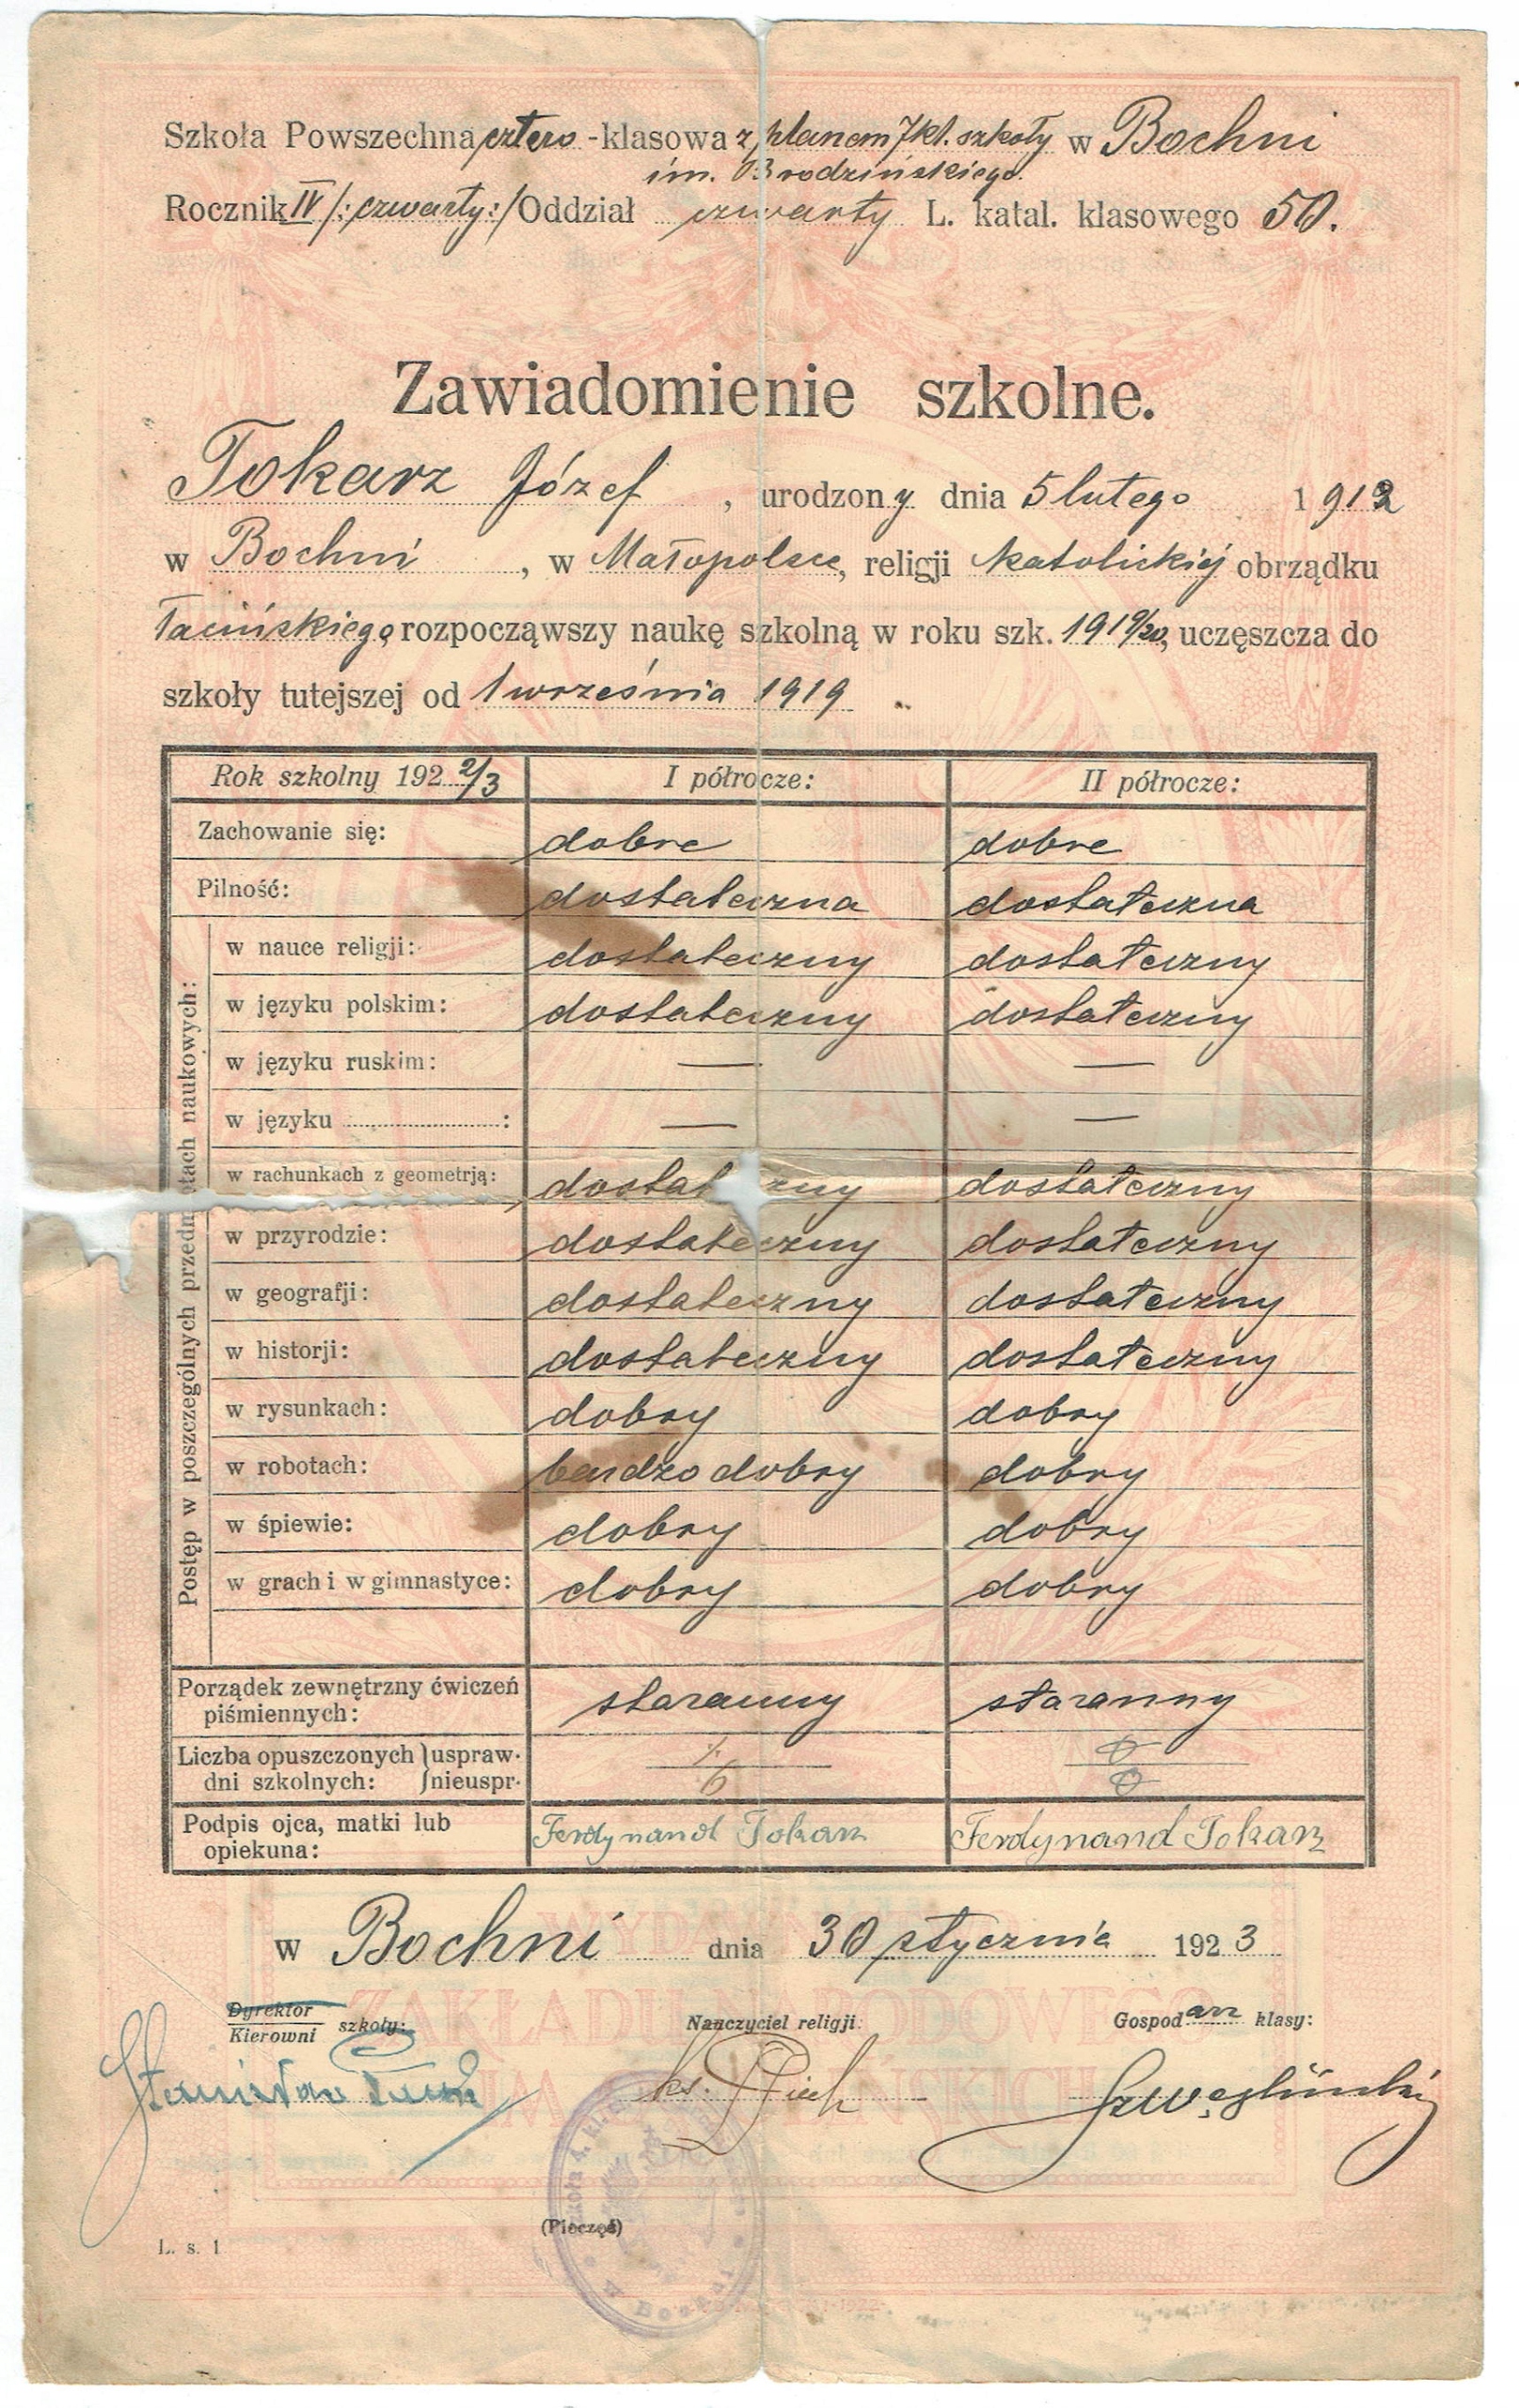 Szkoła Powszechna cztero -klasowa z planem 7kl. szkoły w Bochni
im. Brodzińskiego
Rocznik IV /:czwarty:/ Oddział czwarty L. katal. klasowego 50.
Zawiadomienie szkolne.
Tokarz Józef, urodzony dnia 5 lutego 1912
w Bochni, w Małopolsce, religji katolickiej obrządku
łacińskiego, rozpocząwszy naukę szkolną w roku szk. 1919/20, uczęszcza do
szkoły tutejszej od 1 września 1919
Rok szkolny 1922/3 I półrocze: II półrocze:
Zachowanie się: dobre dobre
Pilność: dostateczna dostateczna
Postęp w poszczególnych przedm tach naukowych:
w nauce religji: dostateczny dostateczny
w języku polskim: dostateczny dostateczny
w języku ruskim: — —
w języku ........................: — —
w rachunkach z geometrją: dostat zny dostateczny
w przyrodzie: dostateczny dostateczny
w geografji: dostateczny dostateczny
w historji: dostateczny dostateczny
w rysunkach: dobry dobry
w robotach: bardzo dobry dobry
w śpiewie: dobry dobry
w grach i w gimnastyce: dobry dobry
Porządek zewnętrzny ćwiczeń
piśmiennych: staranny staranny
Liczba opuszczonych } uspraw. 0
dni szkolnych: } nieuspr. 6 0
Podpis ojca, matki lub
opiekuna: Ferdynand Tokarz Ferdynand Tokarz
w Bochni dnia 30 stycznia 1923
Dyrektor
Kierowni szkoły: Nauczyciel religji: Gospodarz klasy:
Stanisław ks. Piech
(Pieczęć)
L. s. 1